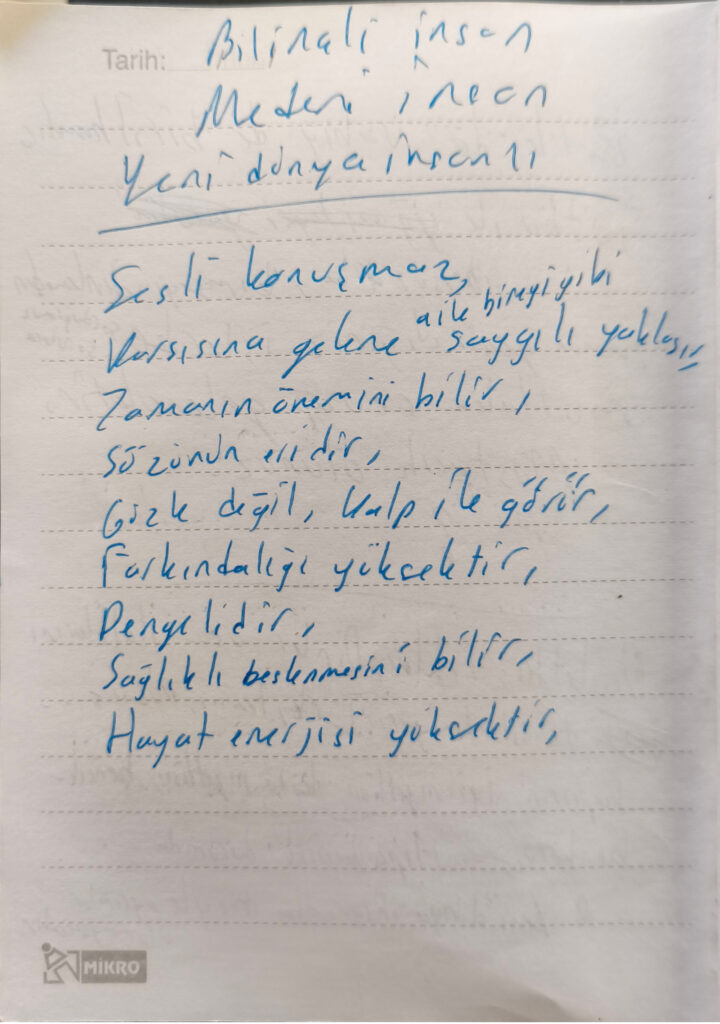 Tarih:
Bilinçli insan
Medeni insan
Yeni dünya insanı
Sesli konuşmaz,
aile bireyi gibi
Karşısına gelene saygılı yaklaşır,
Zamanın önemini bilir,
Sözünün eridir,
Gözle değil, kalp ile görür,
Farkındalığı yüksektir,
Dengelidir,
Sağlıklı beslenmesini bilir,
Hayat enerjisi yüksektir,
MİKRO